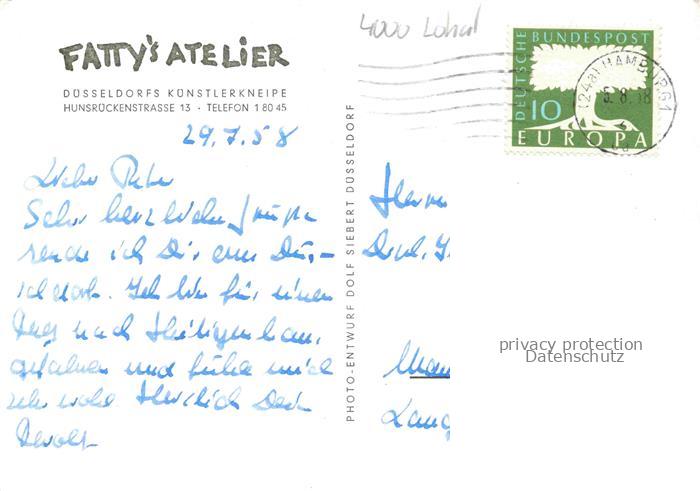 4000 Lokal
FATTY'S ATELIER
DÜSSELDORFS KÜNSTLERKNEIPE
HUNSRÜCKENSTRASSE 13 · TELEFON 1 80 45
29.7.58
Lieber Peter
Sehr herzliche Grüße
sende ich Dir aus Düs-
seldorf. Ich bin für einen
Tag nach
gefahren und fühle mich
sehr wohl. Herzlich Dein
PHOTO-ENTWURF DOLF SIEBERT DÜSSELDORF
DEUTSCHE BUNDESPOST
10
EUROPA
(24a) HAMBURG 1
5.8.58
Herrn
Dipl. I
Lang
privacy protection
Datenschutz